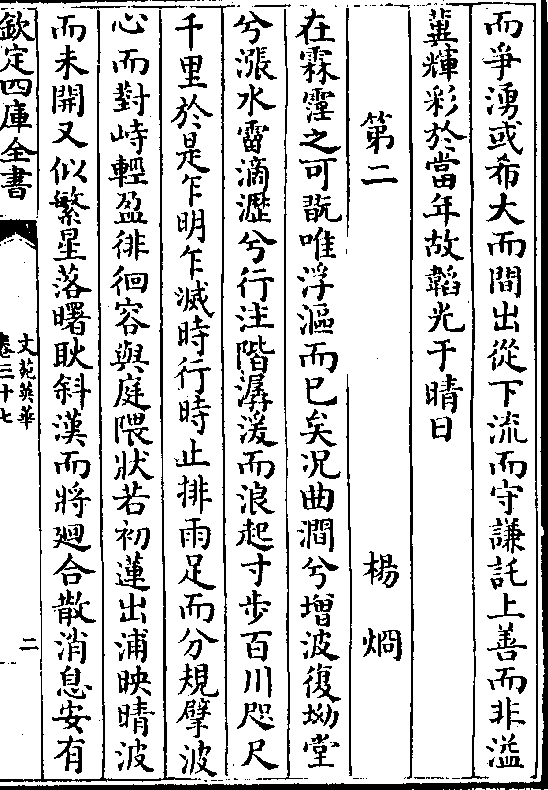 而爭湧或希大而間出從下流而守謙託上善而非溢
冀輝彩於當年故韜光于晴日
第二 楊烱
在霖霪之可翫唯浮漚而已矣况曲澗兮增波復坳堂
兮漲水霤滴瀝兮行注階潺湲而浪起寸步百川咫尺
千里於是乍明乍滅時行時止排雨足而分規擘波
心而對峙輕盈徘徊容與庭隈狀若初蓮出浦映晴波
而未開又似繁星落曙耿斜漢而將廻合散消息安有
欽定四庫全書
文苑英華
卷三十七
二